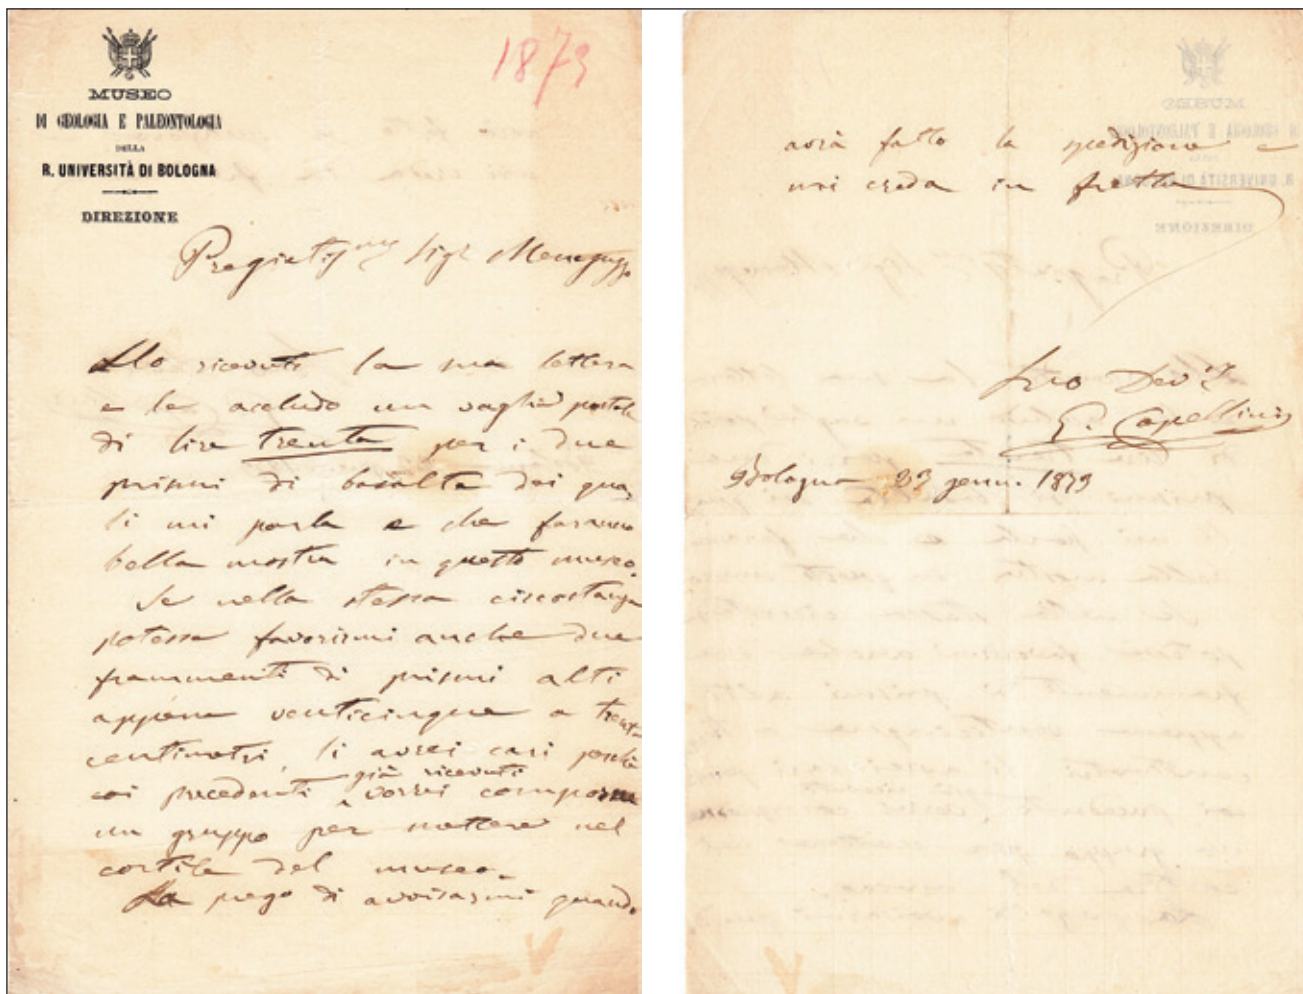 1879
MUSEO
DI GEOLOGIA E PALEONTOLOGIA
DELLA
R. UNIVERSITÀ DI BOLOGNA
DIREZIONE
Pregiatissmo Sigr Meneguzzo
Ho ricevuto la sua lettera
e le accludo un vaglia postale
di lire trenta per i due
prismi di basalte dei qua-
li mi parla e che faranno
bella mostra in questo museo.
Se nella stessa circostanza
potesse favorirmi anche due
frammenti di prismi alti
appena venticinque o trenta
centimetri, li avrei cari perchè
già ricevuti
coi precedenti vorrei comporre
un gruppo per mettere nel
cortile del museo.
La prego di avvisarmi quando
avrà fatto la spedizione e
mi creda in fretta
Suo Dev.
G. Capellini
Bologna 23 genn. 1879